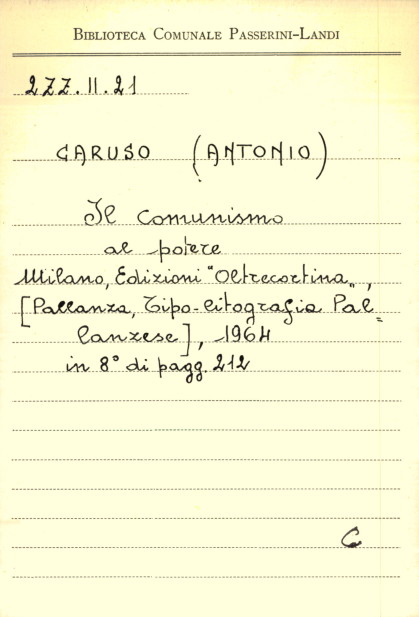 BIBLIOTECA COMUNALE PASSERINI-LANDI
2ZZ.II.21
CARUSO (ANTONIO)
Il comunismo
al potere
Milano, Edizioni "Oltrecortina",
[Pallanza, Tipo-litografia Pal=
lanzese], 1964
in 8° di pagg. 212
C